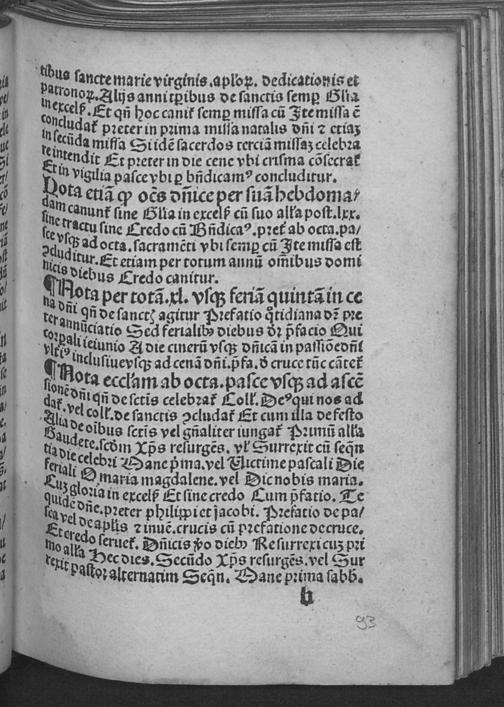 tibus sancte marie virginis. aploꝝ. dedicationis et
patronoꝝ. Alijs anni tꝑibus de sanctis semꝑ Gl̄ia
in excelẜ. Et qn̄ hoc caniť semꝑ missa cū Ite missa ē
concludať preter in prima missa natalis dn̄i ⁊ etiaꝫ
in secūda missa Si idē sacerdos terciā missaꝫ celebra
re intendit Et preter in die cene vbi crisma cōsecrať
Et in vigilia pasce vbi ꝑ bn̄dicamꝰ concluditur.
Nota etiā ꝙ oēs dn̄ice per suā hebdoma/
dam canunť sine Gl̄ia in excelẜ cū suo all̄a post. lxx.
sine tractu sine Credo cū Bn̄dicaꝰ. preť ab octa. pa/
sce vsqꝫ ad octa. sacramēti vbi semꝑ cū Ite missa est
ꝯcluditur. Et etiam per totum annū om̄ibus domi
nicis diebus Credo canitur.
¶Nota per totā. xl. vsqꝫ feriā quintā in ce
na dn̄i qn̄ de sanctꝭ agitur Prefatio q̄tidiana dꝫ pre
ter annūciatio Sed ferialibꝫ diebus dꝛ p̄facio Qui
corꝑali ieiunio A die cinerū vsqꝫ dn̄icā in passiōe dn̄i
vltꝭ inclusiue vsqꝫ ad cenā dn̄i. p̄fa. ō cruce tūc cāteť
¶Nota eccl̄am ab octa. pasce vsqꝫ ad ascē
sionē dn̄i qn̄ de sctīs celebrať Coll̄. Deꝰ qui nos ad
dať. vel coll̄. de sanctis ꝯcludať Et cum illa de festo
Alia de oibus sctīs vel gn̄aliter iungať Primū all̄a
Gaudete. scd̄m Xp̄s resurgēs. vl̄ Surrexit cū seqn̄
tia die celebri Mane p̄ma. vel Victime pascali Die
feriali O maria magdalene. vel Dic nobis maria.
Cuꝫ gloria in excelẜ Et sine credo Cum p̄fatio. Te
quide dn̄e. preter philippi et jacobi. Prefatio de pa/
sca vel de ap̄lis ⁊ inuē. crucis cū prefatione de cruce.
Et credo serueť. Dn̄icis ꝟo diebꝫ Resurrexi cuꝫ pri
mo all̄a Hec dies. Secūdo Xp̄s resurgēs. vel Sur
rexit pastor alternatim Seqn̄. Mane prima sabb̄.
h
93